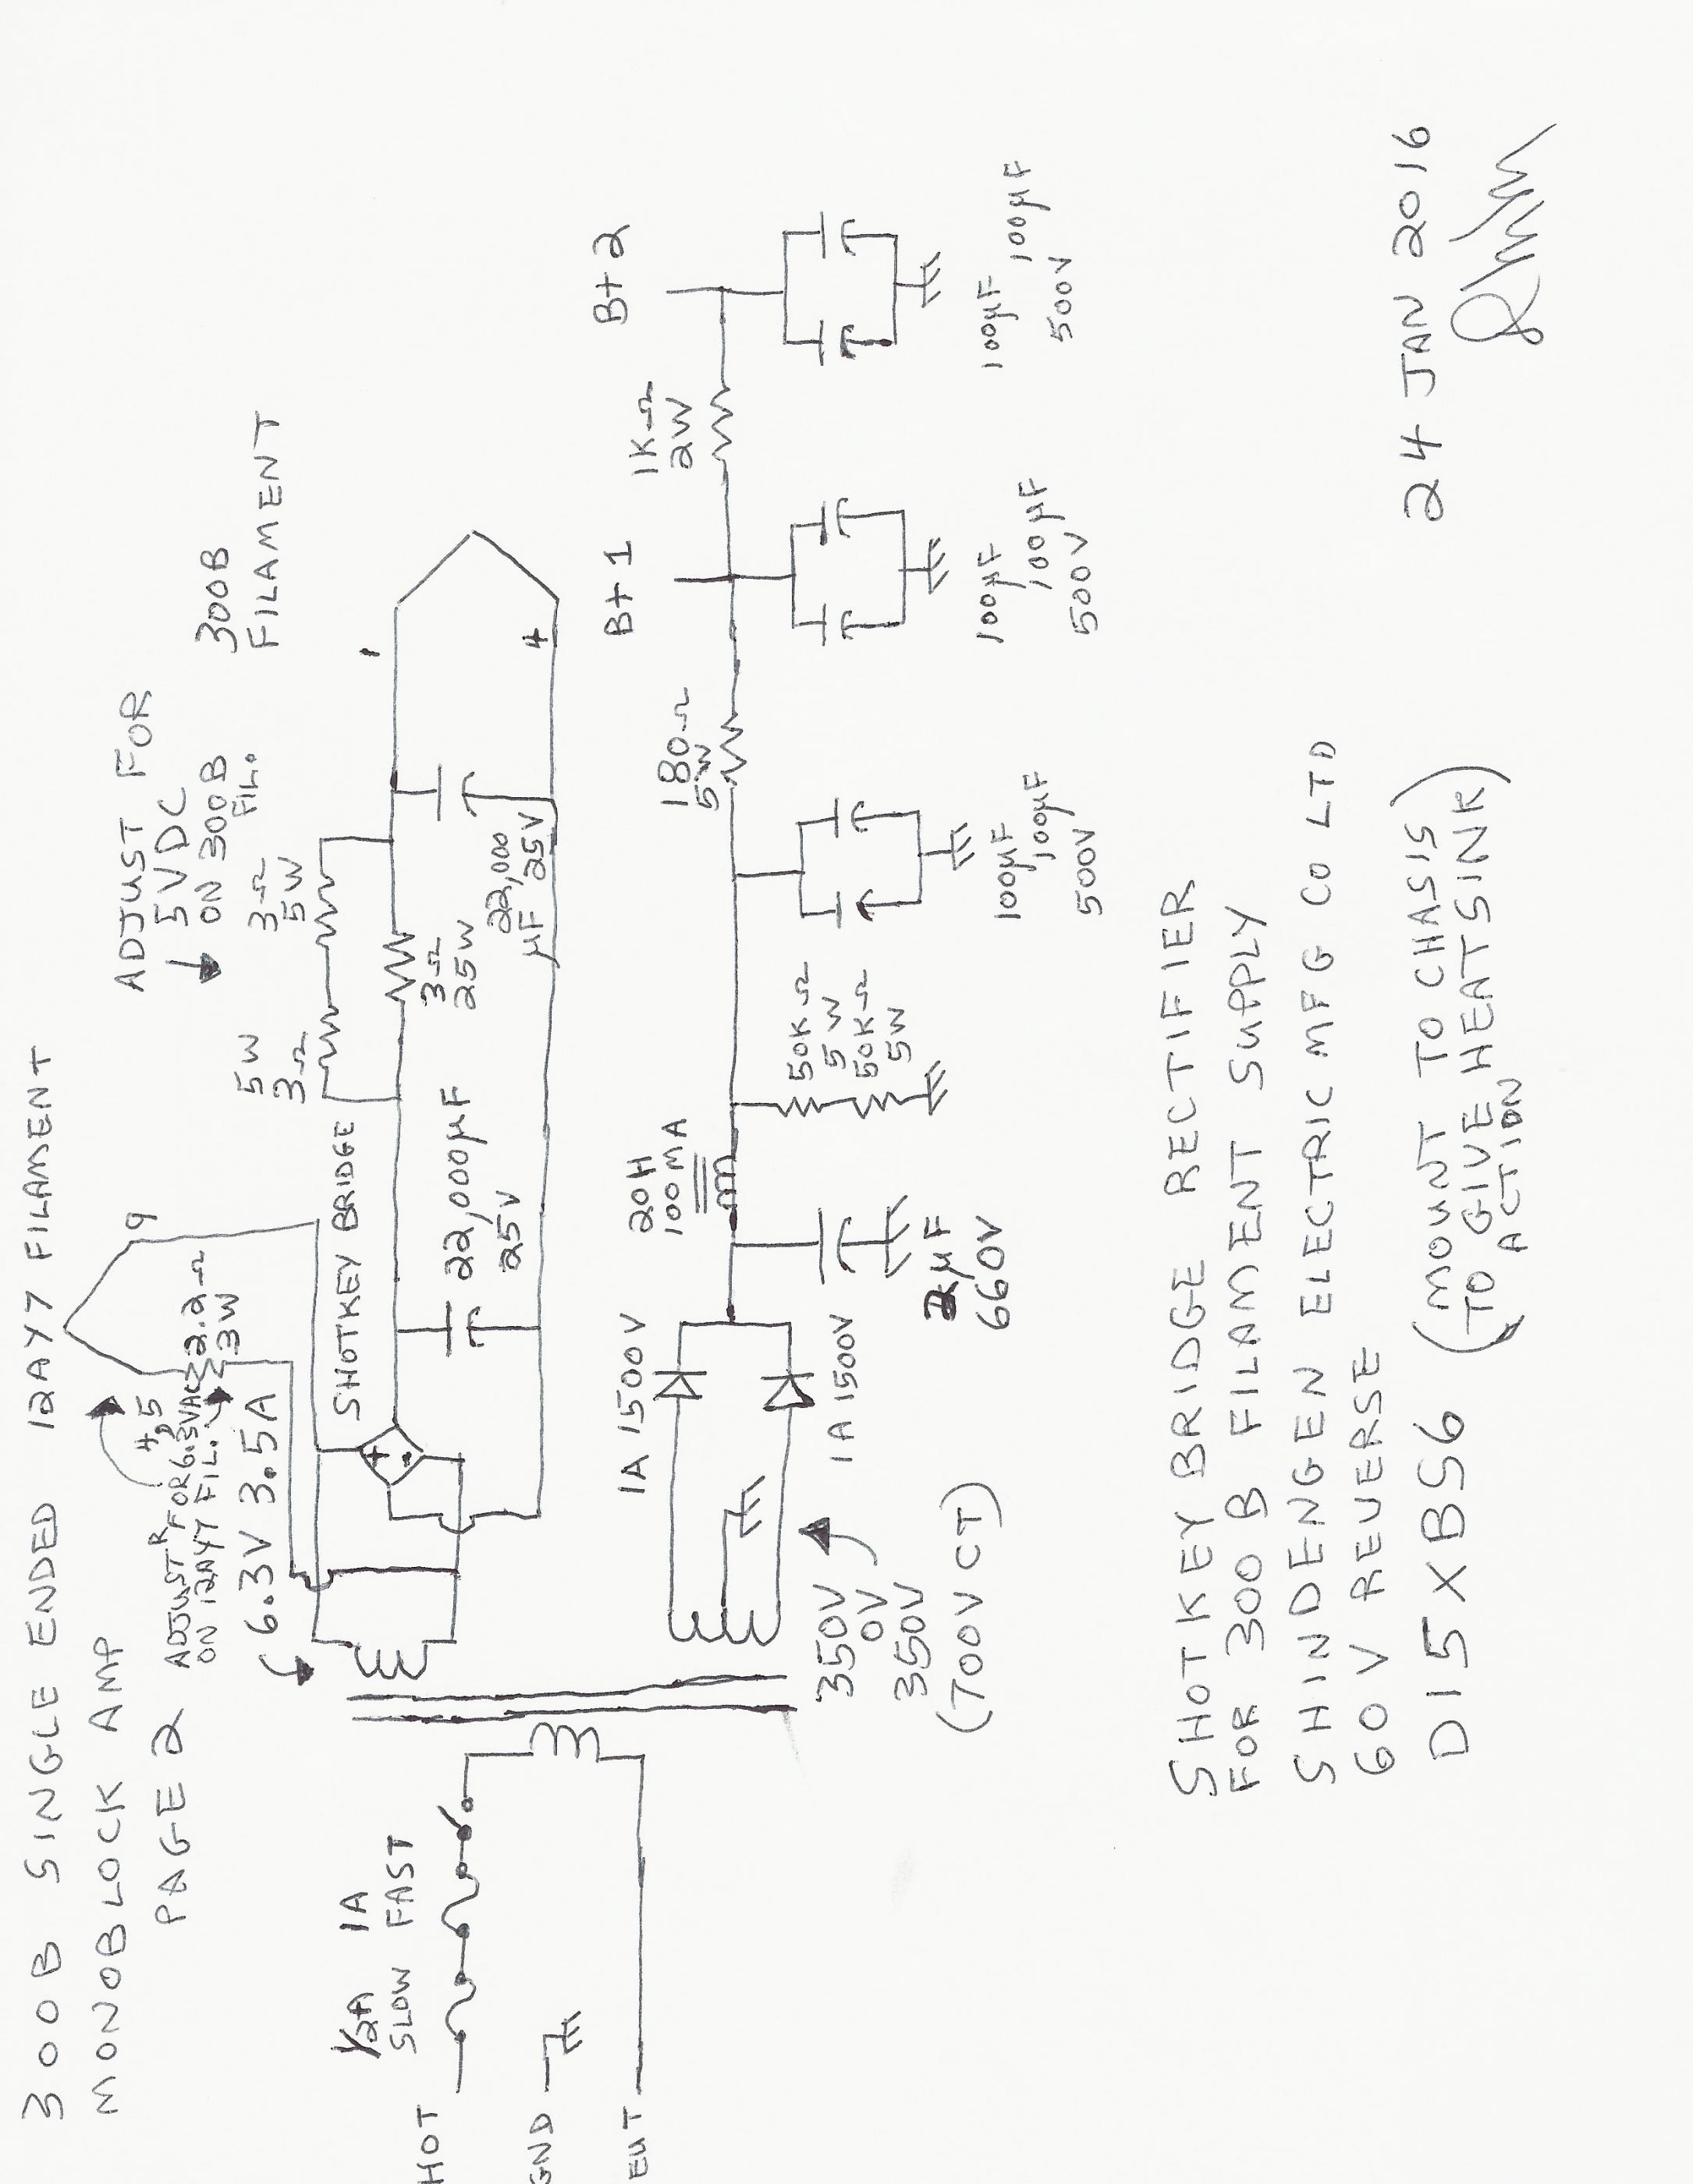 300B SINGLE ENDED
MONOBLOCK AMP
PAGE 2
12AY7 FILAMENT
9
4,5
2.2Ω
3W
ADJUST R FOR 6.3VAC
ON 12AY7 FIL.
6.3V 3.5A
SHOTKEY BRIDGE
+
-
5W
3Ω
3Ω
5W
ADJUST FOR
5VDC
ON 300B
FIL.
300B
FILAMENT
1
4
3Ω
25W
22,000µF
25V
22,000
µF 25V
½A 1A
SLOW FAST
HOT
GND
EUT
1A 1500V
1A 1500V
350V
0V
350V
(700V CT)
20H
100MA
2µF
660V
50KΩ
5W
50KΩ
5W
180Ω
5W
B+1
1KΩ
2W
B+2
100µF
100µF
500V
100µF
100µF
500V
100µF
100µF
500V
SHOTKEY BRIDGE RECTIFIER
FOR 300B FILAMENT SUPPLY
SHINDENGEN ELECTRIC MFG CO LTD
60V REVERSE
D15XBS6 (MOUNT TO CHASIS)
(TO GIVE HEATSINK)
ACTION
24 JAN 2016